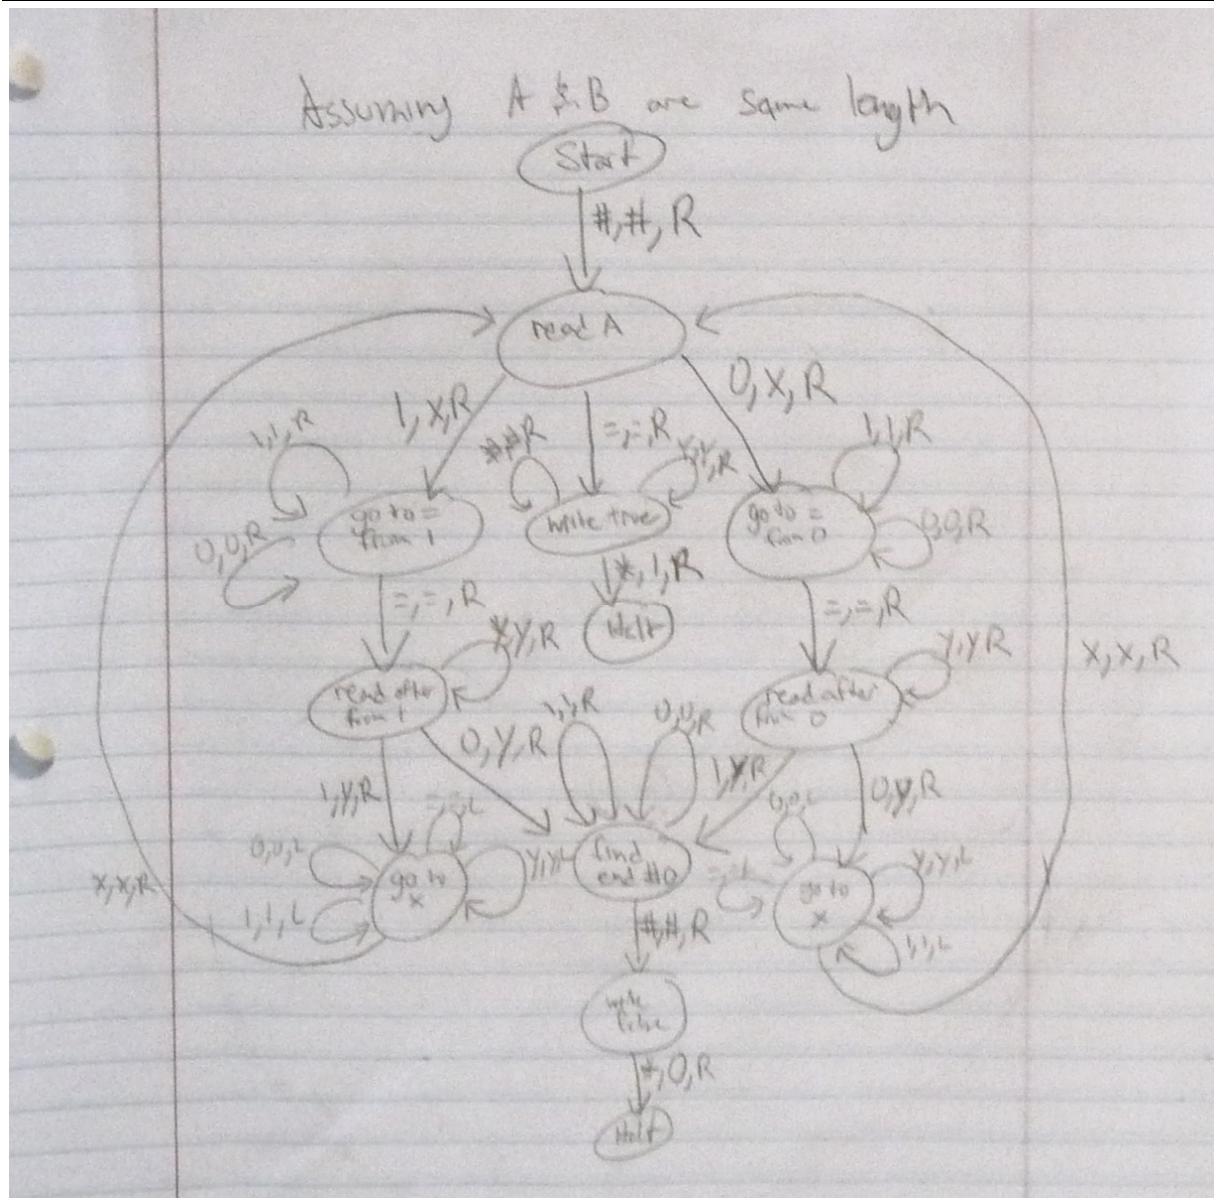 Assuming A & B are same length
Start
#,#,R
read A
1,X,R
=,=,R
0,X,R
1,1,R
#,#R
Y,Y,R
1,1,R
0,0,R
go to =
from 1
write true
go to =
from 0
0,0,R
=,=,R
*,1,R
=,=,R
Halt
Y,Y,R
Y,Y R
X,X,R
read after
from 1
read after
from 0
0,Y,R
1,1,R
0,0,R
1,Y,R
1,Y,R
=,=,L
0,0,L
0,Y,R
0,0,L
go to
X
Y,Y,L
find
end #0
=,=L
go to
X
Y,Y,L
X,X,R
1,1,L
#,#,R
1,1,L
write
false
*,0,R
Halt